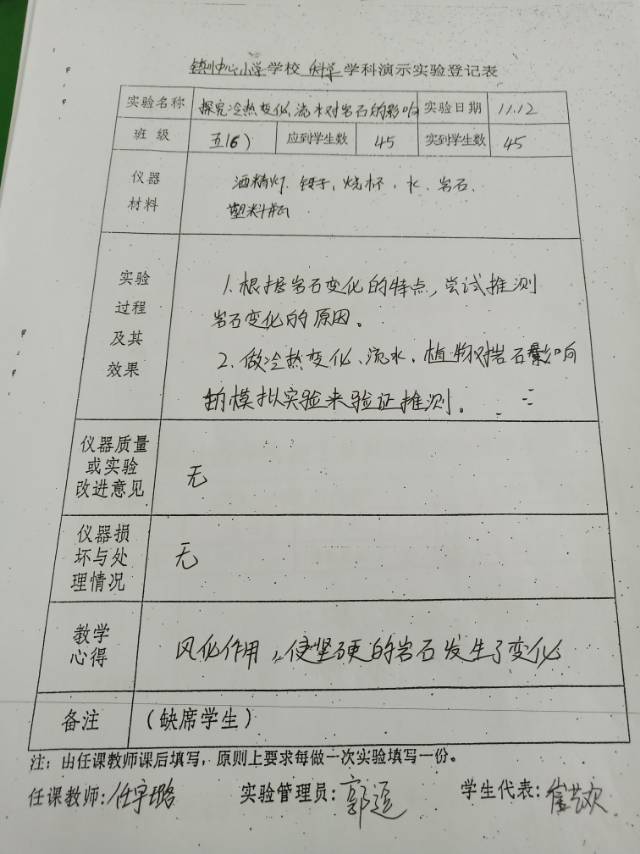 镇中心小学学校 科学 学科演示实验登记表
实验名称 探究冷热变化、流水对岩石的影响 实验日期 11.12
班 级 五(6) 应到学生数 45 实到学生数 45
仪器材料 酒精灯、镊子、烧杯、水、岩石、
塑料瓶
实验过程及其效果
1.根据岩石变化的特点,尝试推测
岩石变化的原因。
2.做冷热变化、流水、植物对岩石影响
的模拟实验来验证推测。
仪器质量或实验改进意见 无
仪器损坏与处理情况 无
教学心得 风化作用,使坚硬的岩石发生了变化
备注 (缺席学生)
注:由任课教师课后填写,原则上要求每做一次实验填写一份。
任课教师:任宇璐 实验管理员:郭 学生代表: